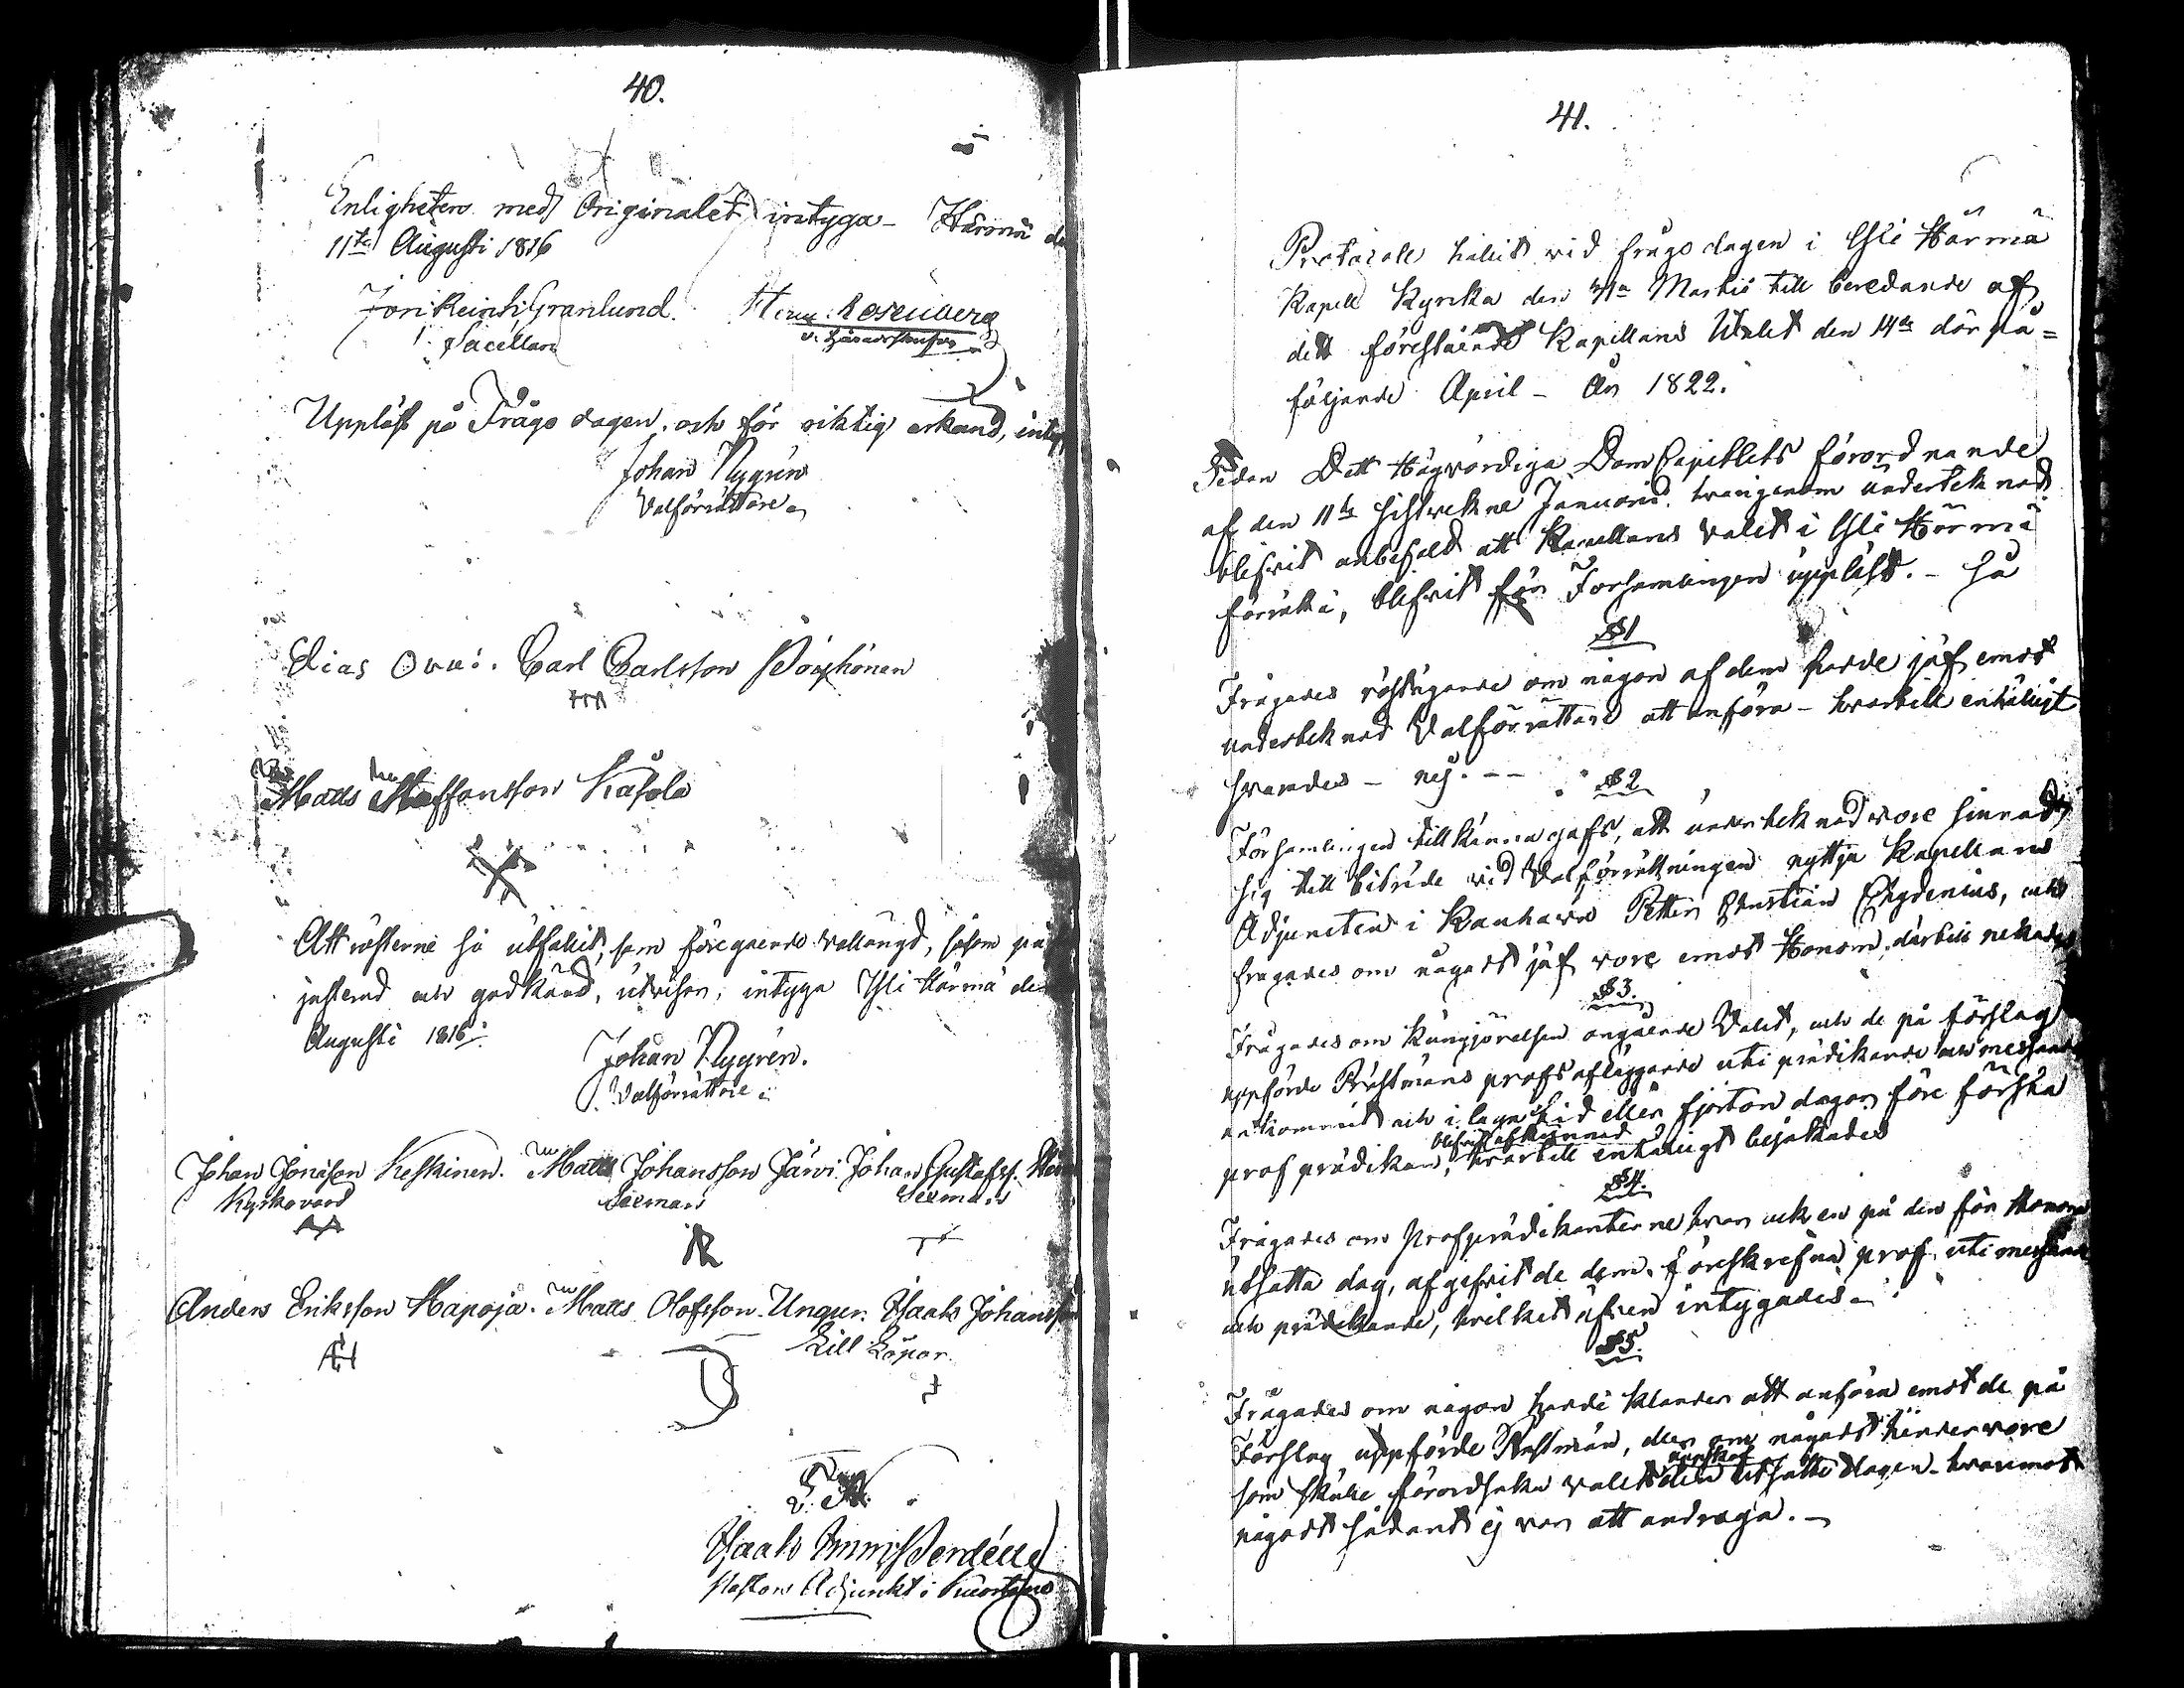 40.
Enligheten med Originalet intyga - Härmä
11te Augusti 1816
Granlund. Rosenberg
Sacellan
Uppläst på Frågo dagen, och för riktig erkänd,
Johan Nygrén
Valförrättare
Elias Carl Carlsson
Matts Staffansson Kasola
Att rösterne så utfallit, som föregående vallängd, såsom
justerad och godkänd, utvisar, intyga Ylihärmä
Augusti 1816
Johan Nygrén.
Valförrättare
Johan Jonasson Keskinen. Matts Johansson Järvi. Johan Gustafss.
Kyrkovärd Sexman Sexman
Anders Eriksson Hapoja. Matts Olofsson Ungur. Isaak Johansson
Lill
Isaak
Pastors Adjunkt i Kuortane
41.
Protocoll hållit vid frågo dagen i Yli Härmä
Kapell Kyrka den Martii till beredande af
dett förestående Kapellans Walet den 14de där på=
följande April - År 1822.
Sedan Dett Högvördiga Dom Capitlets förordnande
af den 11te sistvekne Januarii, hvarigenom underteknad
blifvit anbefald att Kapellans valet i Yli Härmä
förrätta, blifvit för Församlingen uppläst. - så
§ 1
Frågades röstägande om någon af dem hade jäf emot
underteknad Valförrättare att anföra - hvartill enhäligt
svarades - nej. - -
§ 2
Församlingen tillkänna gafs, att underteknad vore sinnad
sig till biträde vid Valförrättningen nyttja Kapellans
Adjuncten i Kauhava Petter Christian Chydenius, och
frågades om någodt jäf vore emot Honom, därtill nekades
§ 3.
Frågades om kungjörelsen angående Valet, och de på förslag
uppförde Prästmäns profs afläggande uti prädikande och messande
ankommit och i laga tid eller fjorton dagar före första
blifvit afkunnad
prof prädikan, hvartill enhäligt bejakades
§ 4.
Frågades om Profprädikanterne hvar och en på den för Honom
utsatta dag, afgifvit de dem föreskrefna prof uti messande
och prädikande, hvilket äfven intygades -
§ 5.
Frågades om någon hade klander att anföra emot de på
Förslag uppförde Prästmän, eller om någodt hinder vore
som skulle förordsaka valets den utsatte dagen - hvaremot
någodt sådant ej var att andraga. -